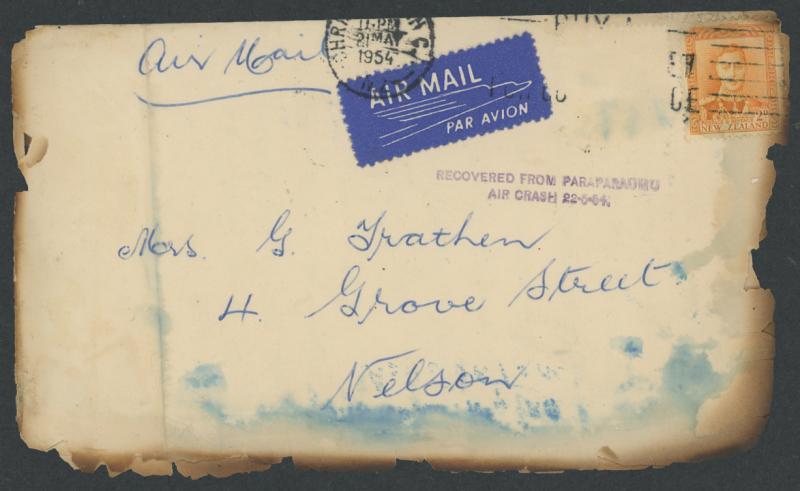 Air Mail
11-PM
21 MAY
1954
AIR MAIL
PAR AVION
2D
NEW ZEALAND
RECOVERED FROM PARAPARAUMU
AIR CRASH 22-5-54.
Mrs. G. Trathen
4. Grove Street.
Nelson